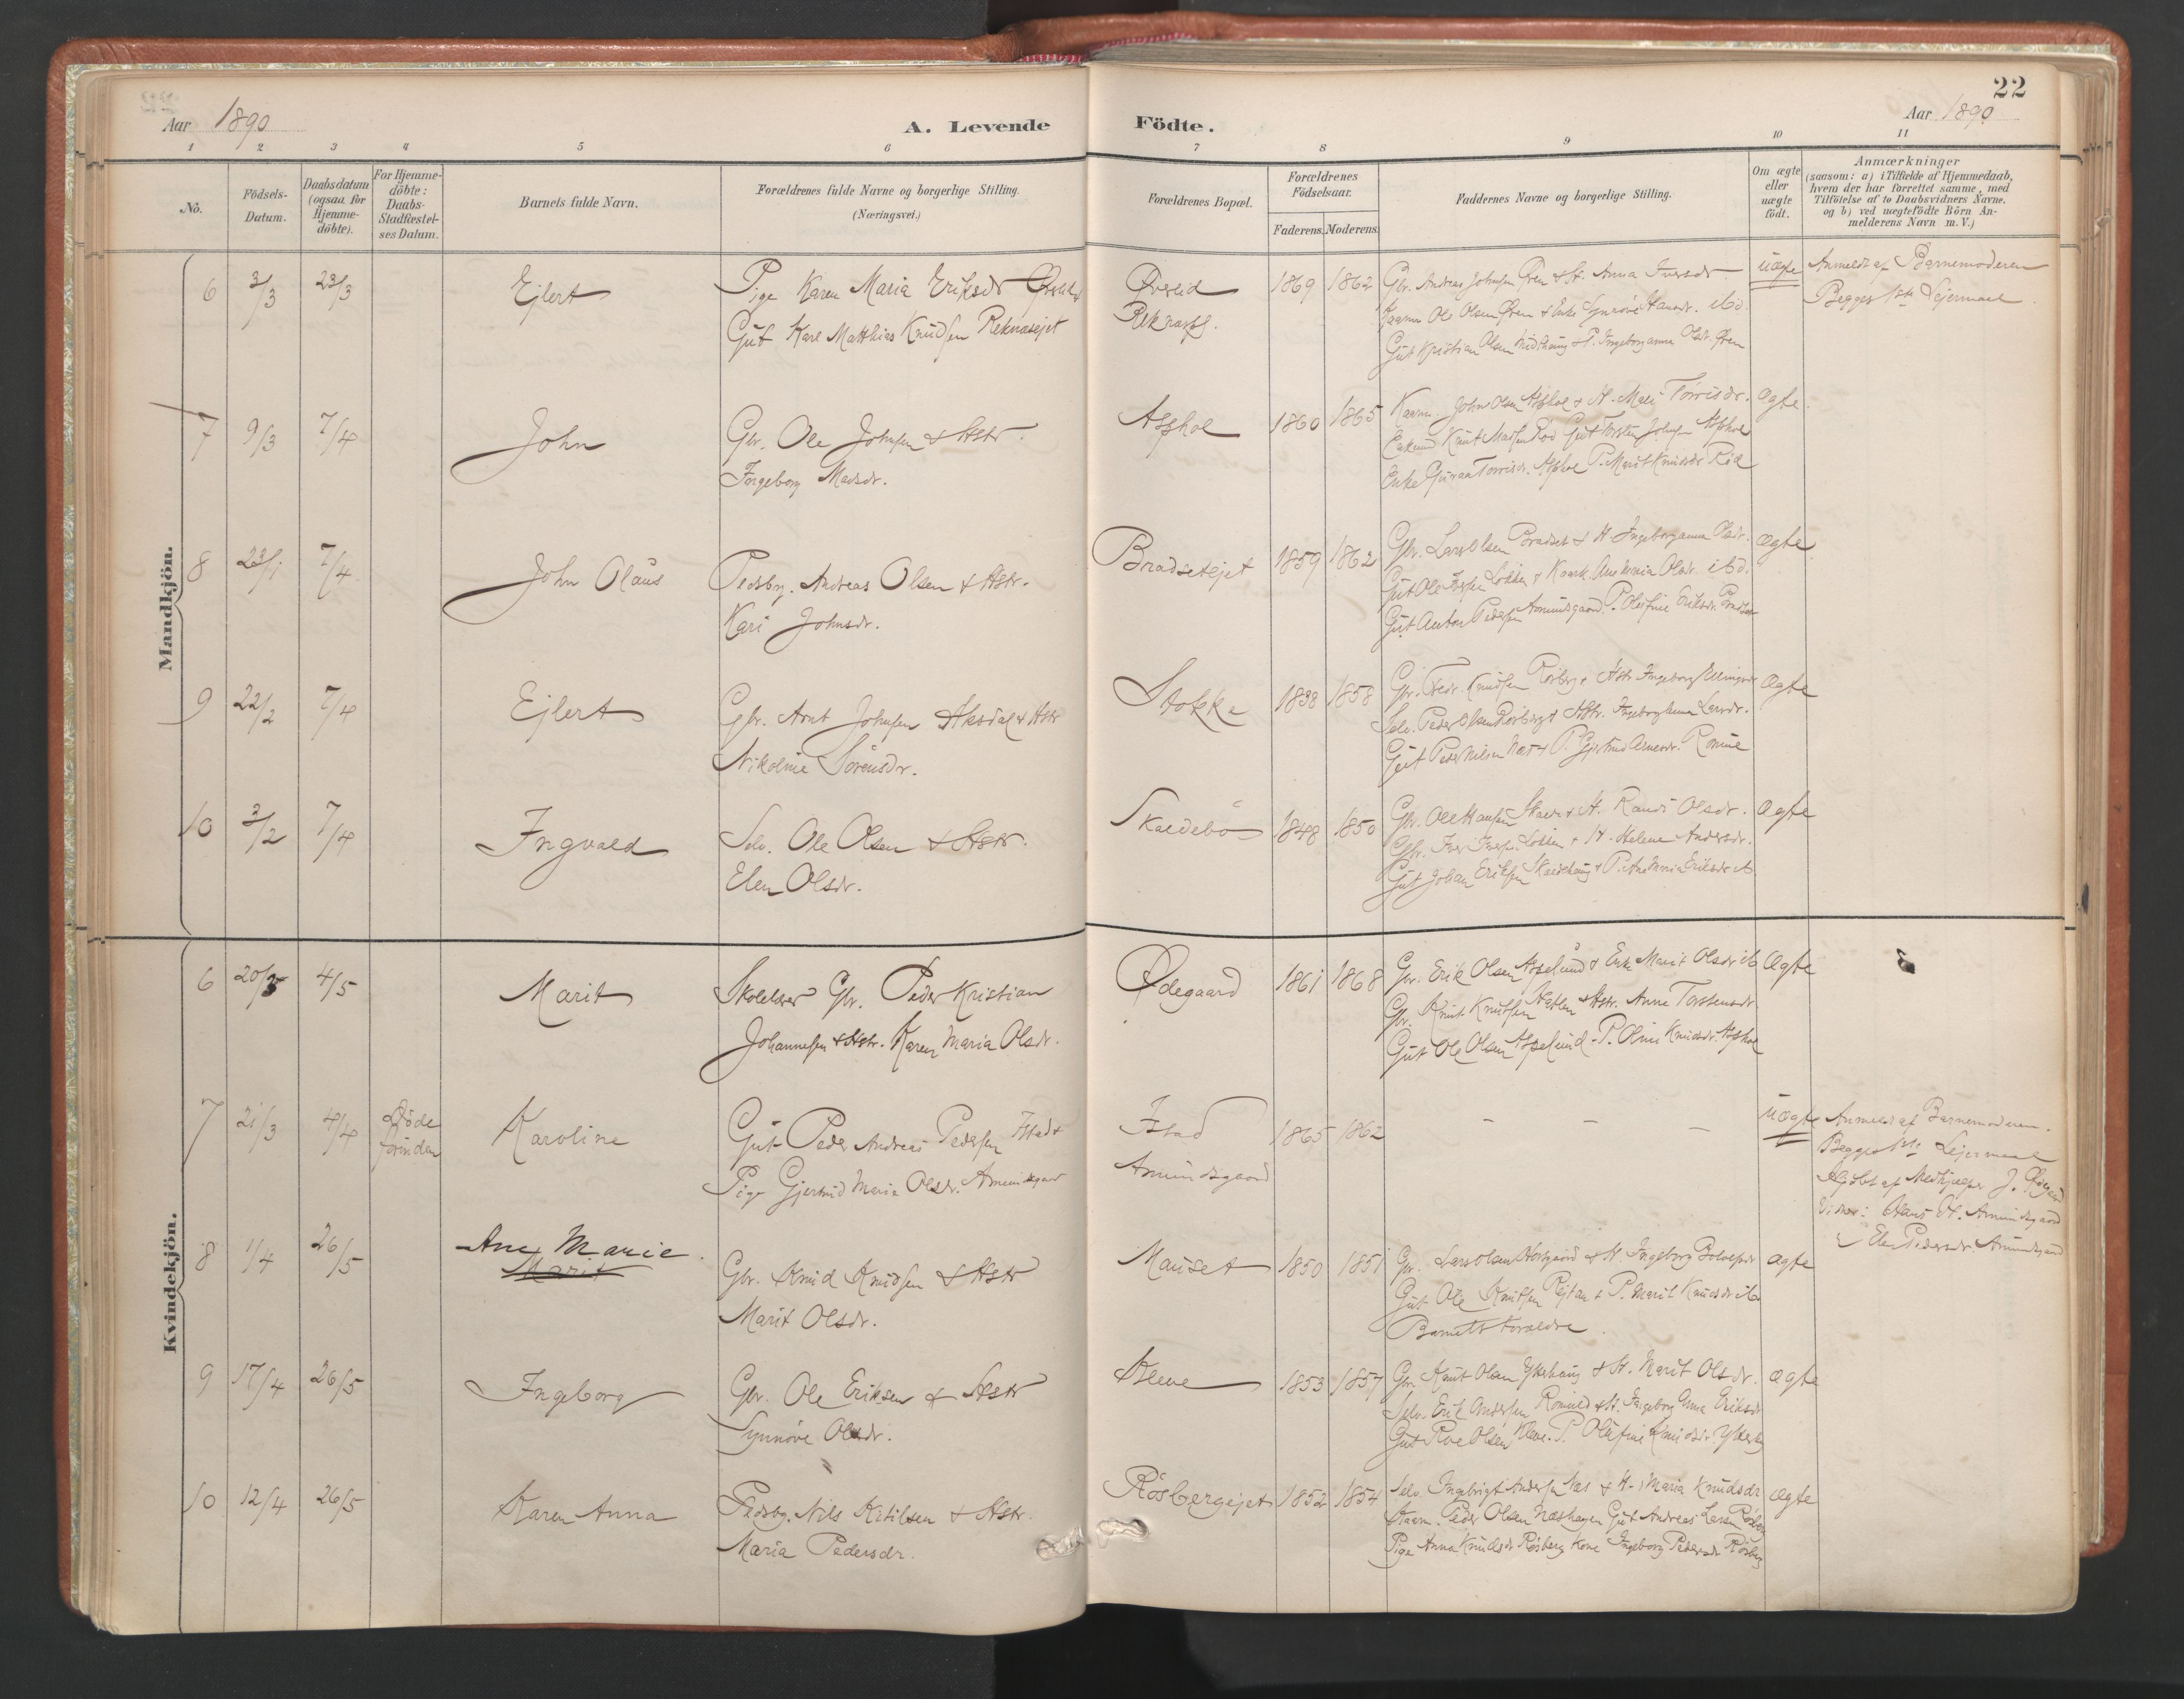 22
Aar 1890
A. Levende Födte.
Aar 1890
1 2 3 4 5 6 7 8 9 10 11
No.
Födsels-Datum.
Daabsdatum (ogsaa for Hjemme-döbte).
For Hjemme-döbte: Daabs-Stadfæstel-ses Datum.
Barnets fulde Navn.
Forældrenes fulde Navne og borgerlige Stilling. (Næringsvei.)
Forældrenes Bopæl.
Forældrenes Födselsaar.
Faderens. Moderens.
Faddernes Navne og borgerlige Stilling.
Om ægte eller uægte födt.
Anmærkninger
(saasom: a) i Tilfælde af Hjemmedaab,
hvem der har forrettet samme, med
Tilföielse af to Daabsvidners Navne.
og b) ved uægtefödte Börn An-
melderens Navn m. V.)
Mandkjön.
6 3/3 23/3 Ejlert
Pige Karen Maria Eriksdr Øverlid
Gut Karl Matthias Knudsen Reknæsejet
Øverlid
1869 1862
Gbr. Andreas Johnsen Øren & H. Anna Iversdr
Kaarm Ole Olsen Øren & Enke Synnöve Hansdr. ibd.
Gut Kristian Olsen Midthaug & P. Ingeborganna Olsdr. Øren
Uægte
Anmeldt af Barnemoderen
Begges 1ste Lejermaal
7 9/3 7/4 John
Gbr. Ole Johnsen & Hstr.
Ingeborg Madsdr.
Asphol 1860 1865
Kaarm. John Olsen Asphol & H. Mali Torrisdr.
Knut Madsen Röd Gut Torsten Johnsen Asphol
Enke Guraa Torrisdr. Asphol P. Marit Knudsdr Röd
Ægte
8 23/1 7/4 John Olaus
Pladsbrg. Andreas Olsen & Hstr.
Kari Johnsdr.
Bradsetejet 1859 1862
Gbr. Lars Olsen Bradset & H. Ingeborganna Olsdr.
Gut Ole Iversen Lökken & Kaark. Ane Maria Olsdr. ibd.
Gut Anton Pedersen Amundsgaard P. Olufine Eriksdr. Bradset
Ægte
9 22/2 7/4 Ejlert
Gbr. Arnt Johnsen Aksdal & Hstr
Nikoline Sörensdr.
Stokke 1838 1858
Gbr. Peder Knudsen Rösberg & Hstr Ingeborg Ellingsdr
Selv. Peder Olsen Rösberg & Hstr. Ingeborg Anna Larsdr.
Gut Peder Nilsen Næs & P. Gjertrud Arnesdr.
Ægte
10 3/2 7/4 Ingvald
Selv. Ole Olsen & Hstr.
Elen Olsdr.
Skaldebö 1848 1850
Gbr. Ole Hansen & H. Randi Olsdr.
Gbr. Iver Iversen Lökken & H. Helene Andersdr.
Gut Johan Eriksen Skardhaug & P. Ane Maria Eriksdr ib.
Ægte
Kvindekjön.
6 20/3 4/5 Marit
Skolelærer Gbr. Peder Kristian
Johannesen & Hstr. Karen Maria Olsdr.
Ødegaard 1861 1868
Gbr. Erik Olsen Aspelund & Enke Marit Olsdr ib
Gbr. Knut Knutsen & Hstr. Anne Torstensdr
Gut Ole Olsen Aspelund - P. Oline Knudsdr. Asphol
Ægte
7 21/3 4/4 Döde forinden Karoline
Gut Peder Andreas Pedersen Istad &
Pige Gjertrud Maria Olsdr. Amundsgaard
Istad
Amundsgaard
1865 1862
– – –
Uægte
Anmeldt af Barnemoderen.
Begges 1ste Lejermaal
Hjdöbt af Medhjælper J. Ødegaard
Vidner: Amundsgaard
Elen Pedersdr. Amundsgaard
8 1/4 26/5 Ane Marie
Marit
Gbr. Knud Knudsen & Hstr
Marit Olsdr.
Mauset 1850 1851
Gbr. Lars Olsen & H. Ingeborg
Gut Ole Knutsen & P. Marit Knudsdr ib
Barnets Forældre.
Ægte
9 17/4 26/5 Ingeborg
Gbr. Ole Eriksen & Hstr
Synnöve Olsdr.
Kleve 1853 1857
Gbr. Knut Olsen Ykshaug & H. Marit Olsdr.
Selv. Erik Andersen & H. Ingeborg Anna Eriksdr
Gut Roe Olsen Kleve. P. Olufine Knudsdr
Ægte
10 12/4 26/5 Karen Anna
Pladsbg. Nils Ketilsen & Hstr.
Maria Pedersdr.
Rösbergejet 1852 1854
Selv. Ingebrigt Andersen Næs & H. Maria Knudsdr
Kaarm. Peder Olsen Næshagen Gut Andreas Larsen Rösberg
Pige Anna Knudsdr Rösberg Kone Ingeborg Pedersdr Rösberg
Ægte